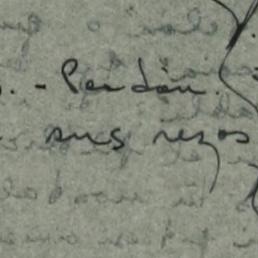 . - Perdón.
sus rezos